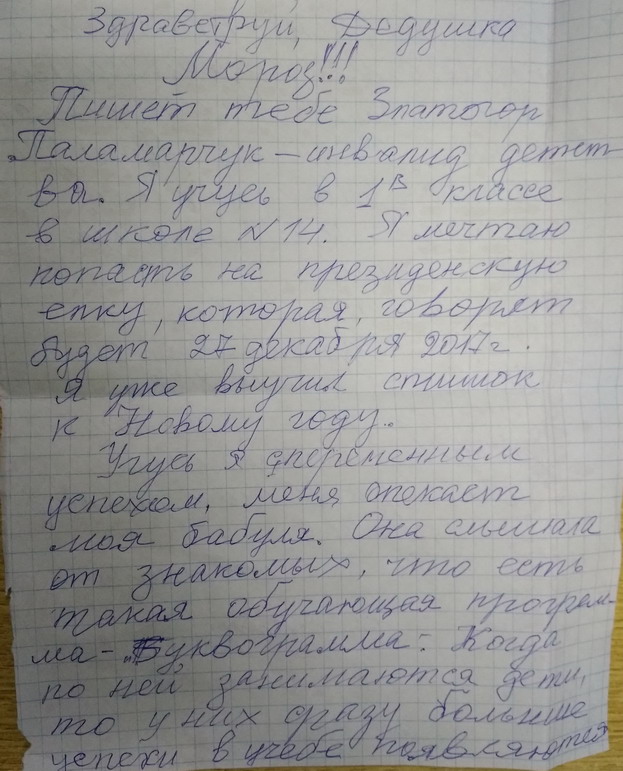 Здравствуй, Дедушка
Мороз!!!
Пишет тебе Златогор
Паламарчук – инвалид детст-
ва. Я учусь в 1В классе
в школе №14. Я мечтаю
попасть на президенскую
елку, которая, говорят
будет 27 декабря 2017г.
Я уже выучил стишок
к Новому году.
Учусь я с переменным
успехом, меня опекает
моя бабуля. Она слышала
от знакомых, что есть
такая обучающая програм-
ма – „Буквограмма". Когда
по ней занимаются дети,
то у них сразу большие
успехи в учебе появляются